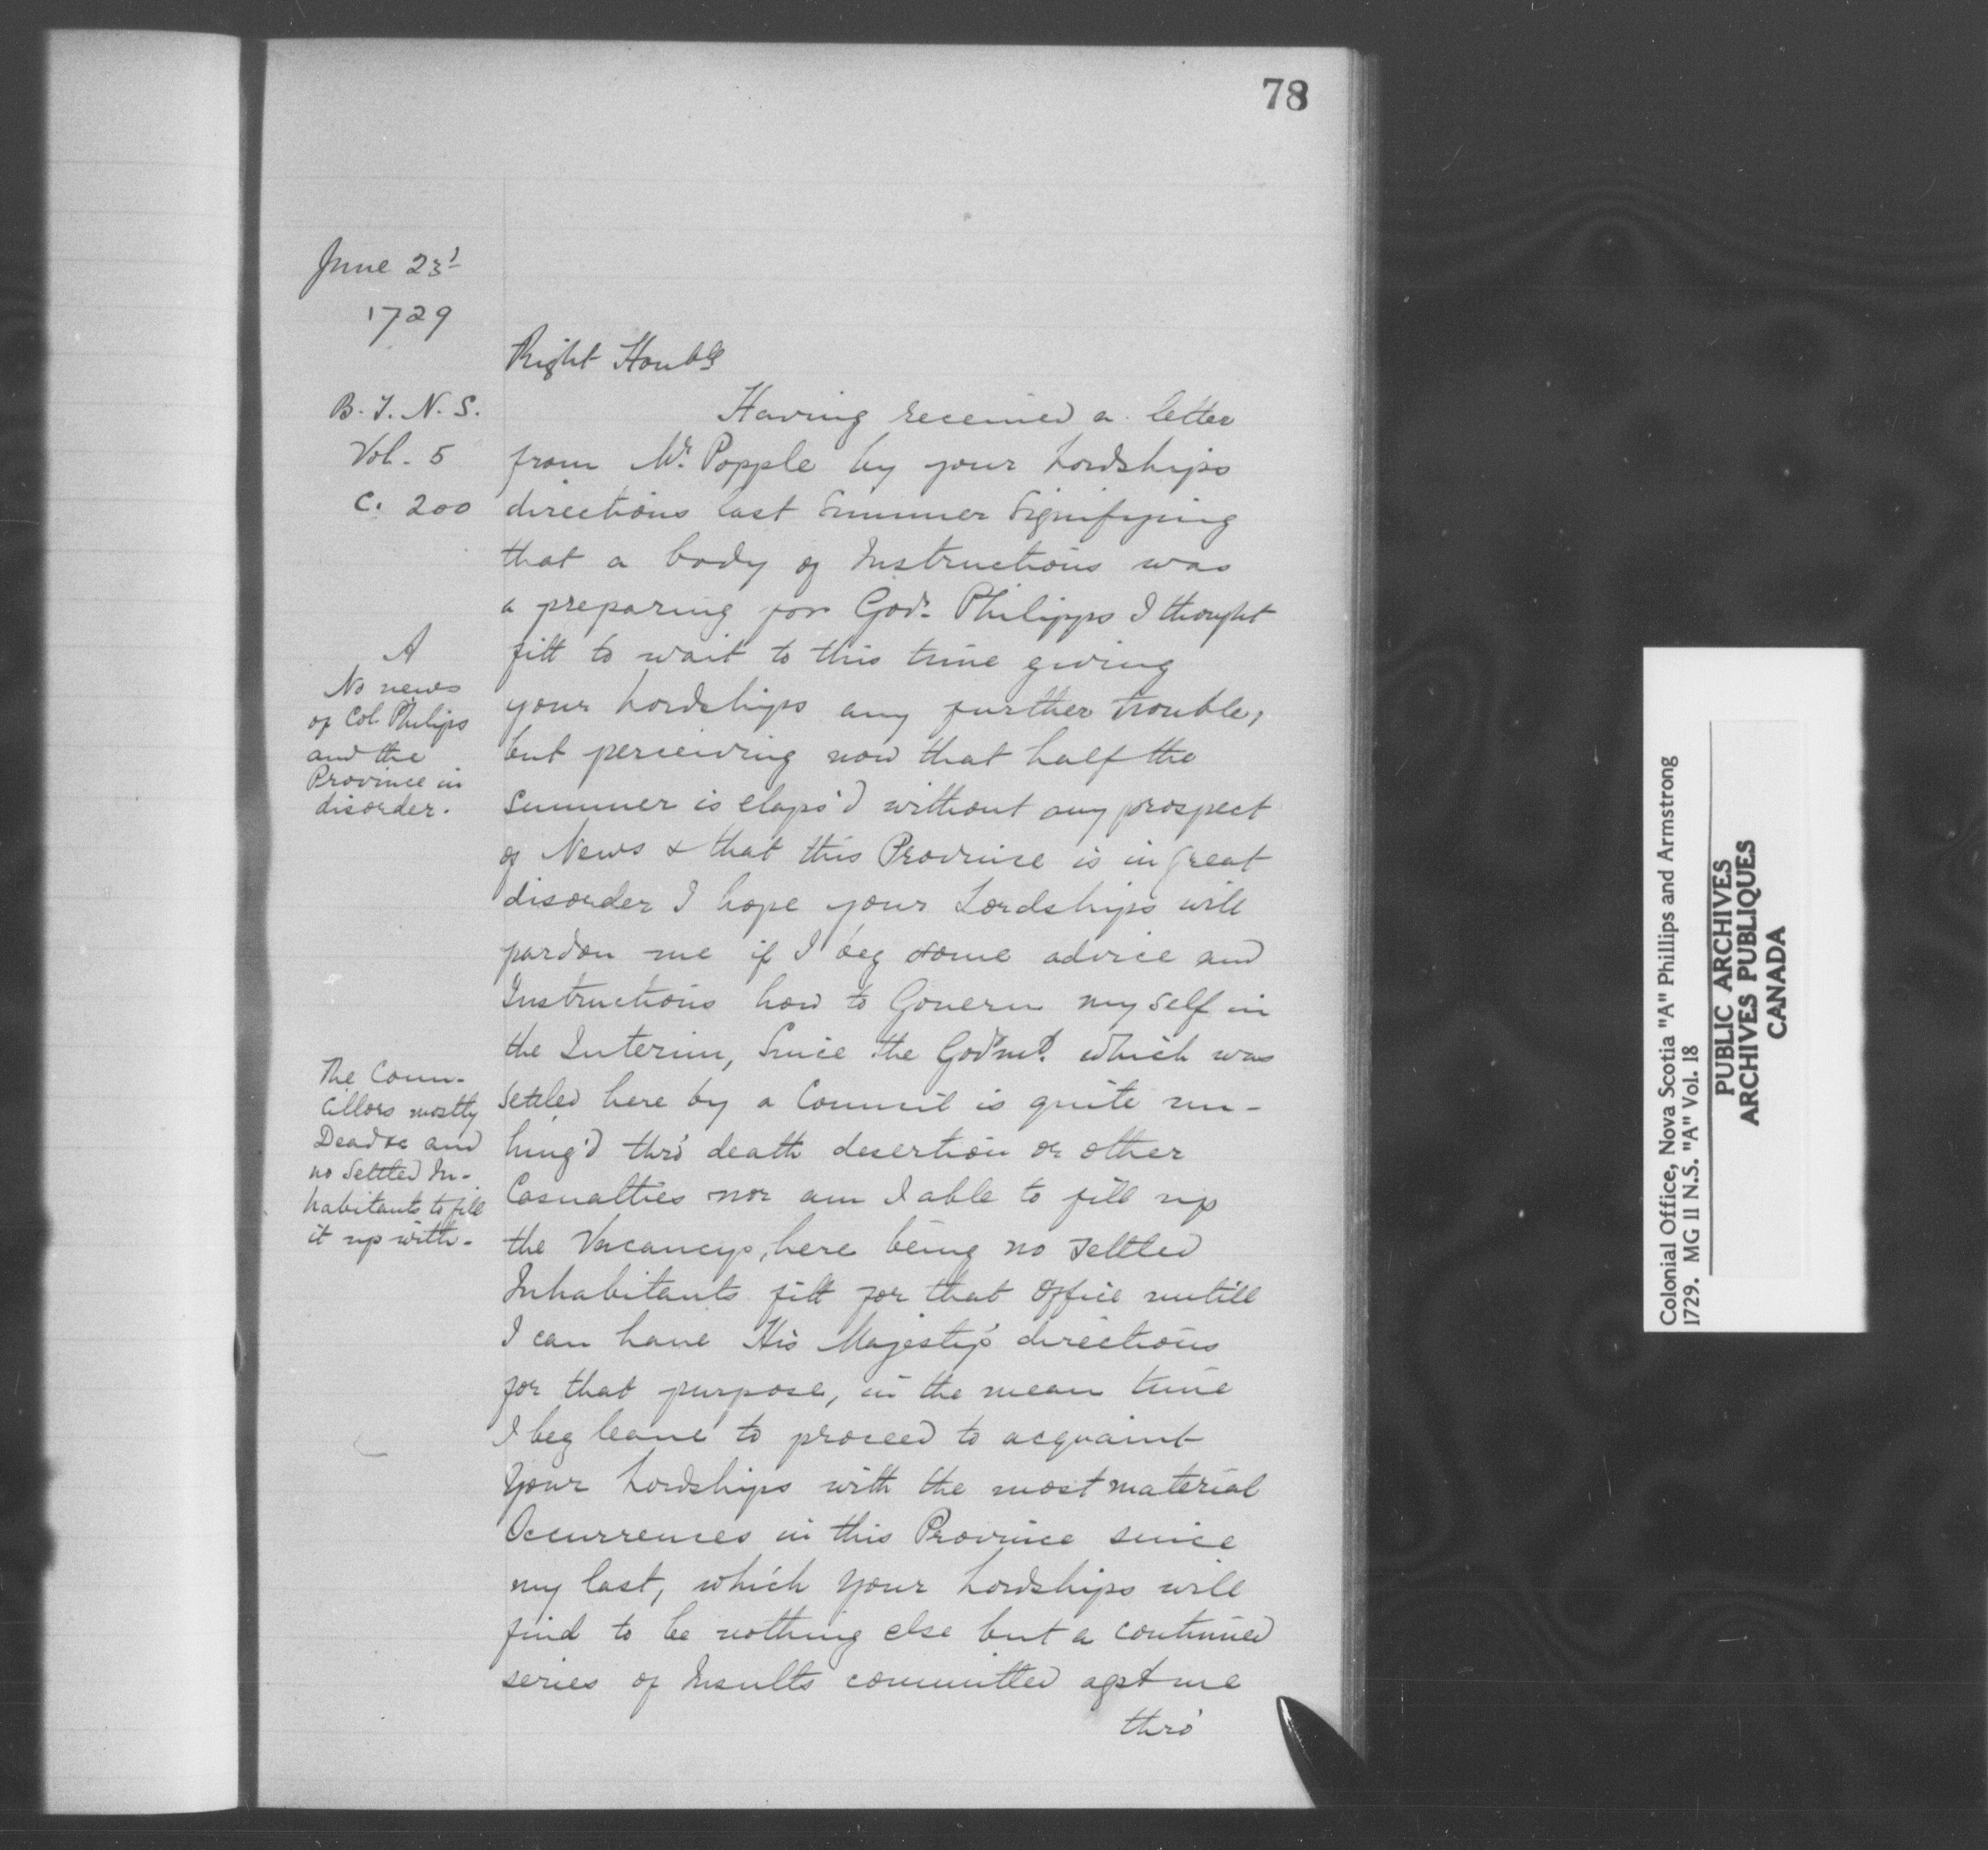 78
June 23d
1729
B. T. N. S.
Vol. 5
C. 200
Right Honble
Having received a letter
from Mr. Popple by your Lordships
directions last Summer Signifying
that a body of Instructions was
a preparing for Govr. Philipps I thought
fitt to wait to this time giving
your Lordships any further trouble,
but perceiving now that half the
Summer is elaps'd without any prospect
of News & that this Province is in great
disorder I hope your Lordships will
pardon me if I beg some advice and
Instructions how to Govern my self in
the Interim, Since the Govrmt. which was
settled here by a Council is quite un-
hing'd thro' death desertion or other
Casualties nor am I able to fill up
the Vacancys, here being no settled
Inhabitants fitt for that Office untill
I can have His Majesty's directions
for that purpose, in the mean time
I beg leave to proceed to acquaint
Your Lordships with the most material
Occurrences in this Province since
my last, which Your Lordships will
find to be nothing else but a continued
series of Insults committed agst me
thro'
A
No news
of Col. Philips
and the
Province in
disorder.
The Coun-
cillors mostly
Dead &c and
no Settled In-
habitants to fill
it up with.
Colonial Office, Nova Scotia "A" Phillips and Armstrong
1729. MG 11 N.S. "A" Vol. 18
PUBLIC ARCHIVES
ARCHIVES PUBLIQUES
CANADA